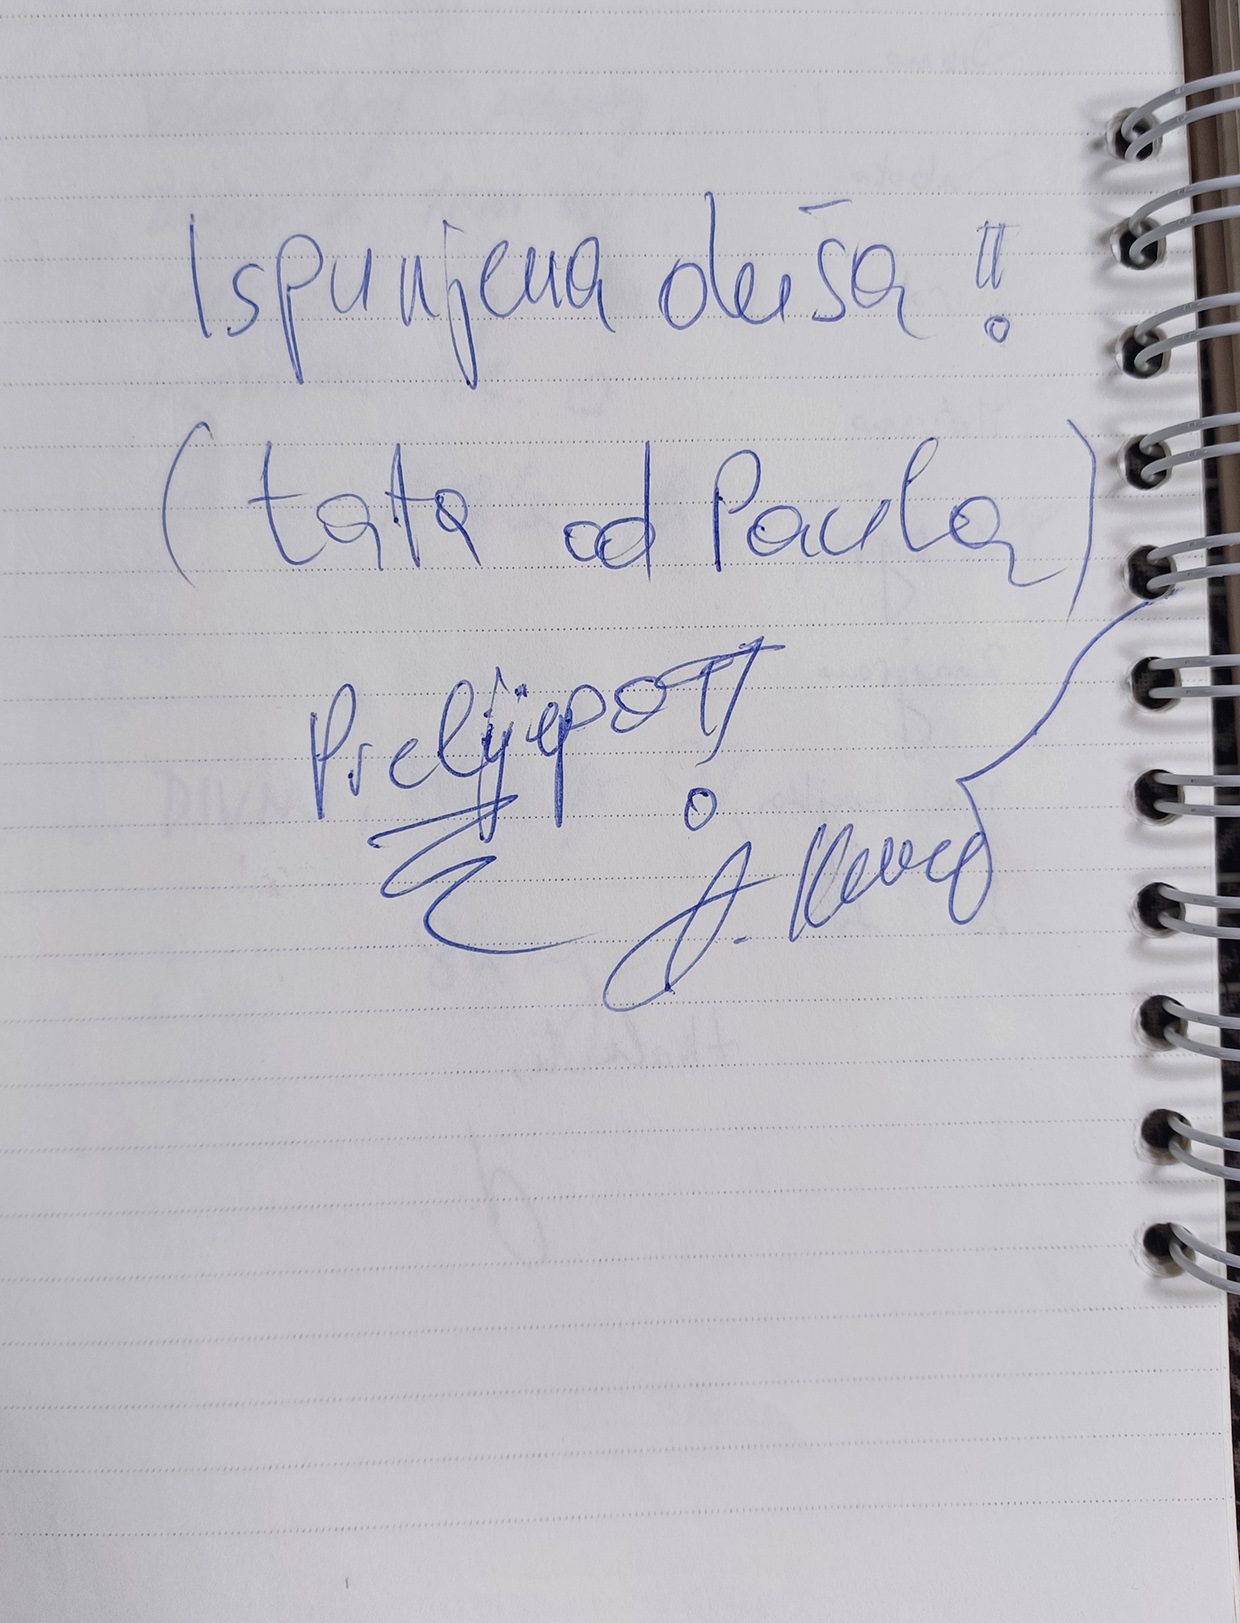 Ispunjena duša!!
(tata od Paula)
Prelijepo!!